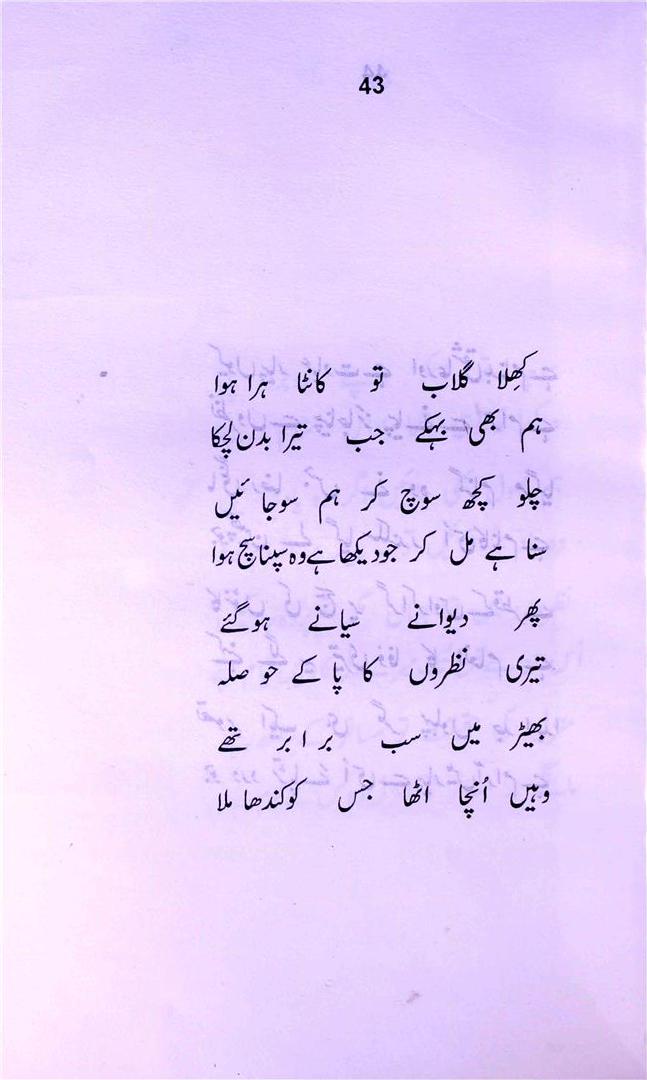 43
کھِلا گلاب تو کانٹا ہرا ہوا
ہم بھی بہکے جب تیرا بدن لچکا
چلو کچھ سوچ کر ہم سوجائیں
سنا ہے مل کر جو دیکھا ہے وہ سپنا سچ ہوا
پھر دیوانے سیانے ہوگئے
تیری نظروں کا پا کے حوصلہ
بھیڑ میں سب برابر تھے
وہیں اُنچا اٹھا جس کو کندھا ملا